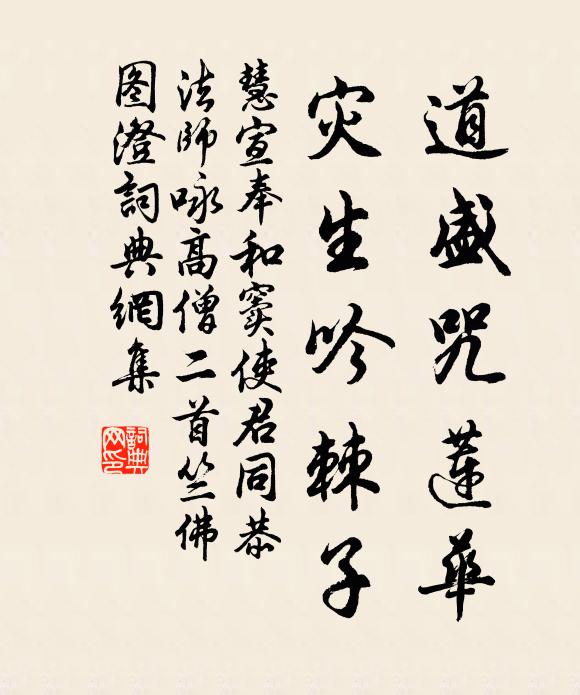 道盛咒蓮華
灾生吟棘子
慧宣奉和竇使君同恭
法師咏高僧二首竺佛
图澄詞典網集
詞典網印